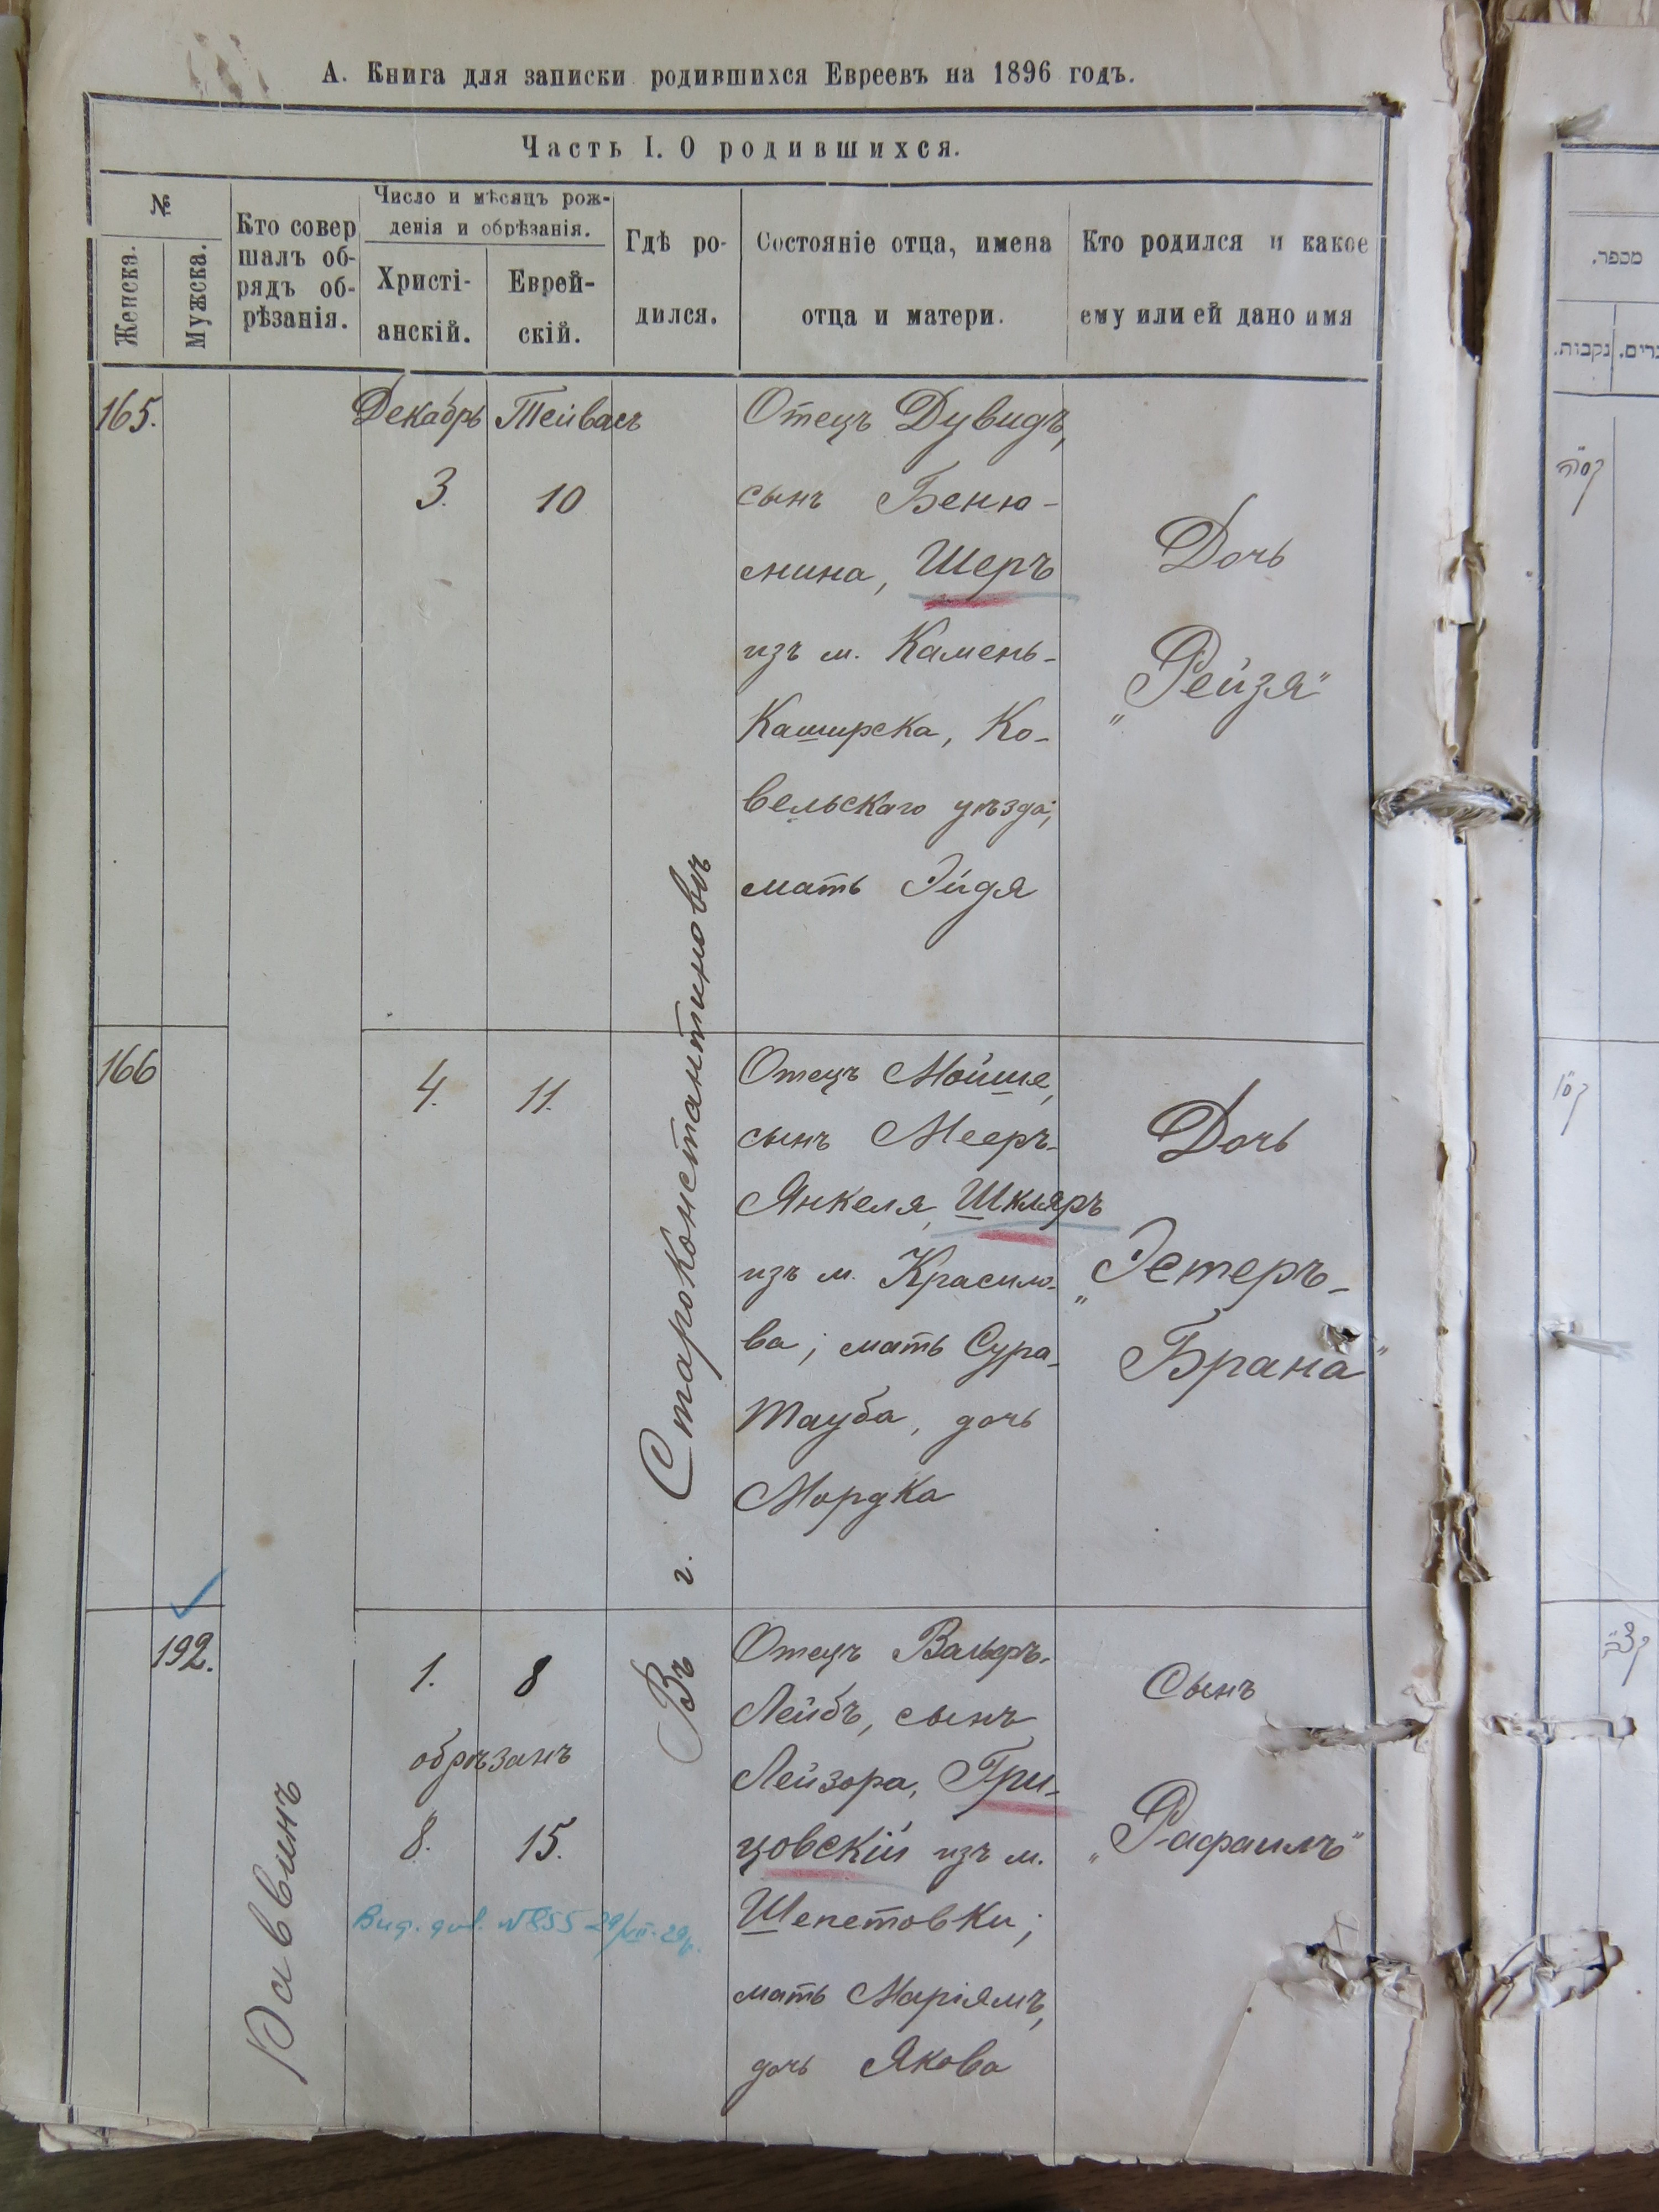 А. Книга для записки родившихся Евреевъ на 1896 годъ.
Часть I. О родившихся.
№
Женска.
Мужска.
Кто совер
шалъ об-
рядъ об-
рѣзанія.
Число и мѣсяцъ рож-
денія и обрѣзанія.
Христі-
анскій.
Еврей-
скій.
Гдѣ ро-
дился.
Состояніе отца, имена
отца и матери.
Кто родился и какое
ему или ей дано имя
165.
Декабрь
3.
Тейвасъ
10
Отецъ Дувидъ,
сынъ Беню-
мина, Шеръ
изъ м. Камень-
Каширска, Ко-
вельскаго уѣзда;
мать Эйдя
Дочь
„Рейзя"
166
4.
11.
Отецъ Мойше,
сынъ Мееръ-
Янкеля, Шкляръ
изъ м. Красило-
ва; мать Сура-
Тауба, дочь
Мордка
Дочь
„Эстеръ-
Брана"
Въ г. Староконстантиновѣ
192.
Раввинъ
1.
8
обрѣзанъ
8.
15.
Вид. дов. №855 29/VII-29р.
Отецъ Вольфъ-
Лейбъ, сынъ
Лейзора, Гри-
цовскій изъ м.
Шепетовки;
мать Маріямъ,
дочь Якова
Сынъ
„Рафаилъ"
מספר.
נקבות.
קסה
קסו